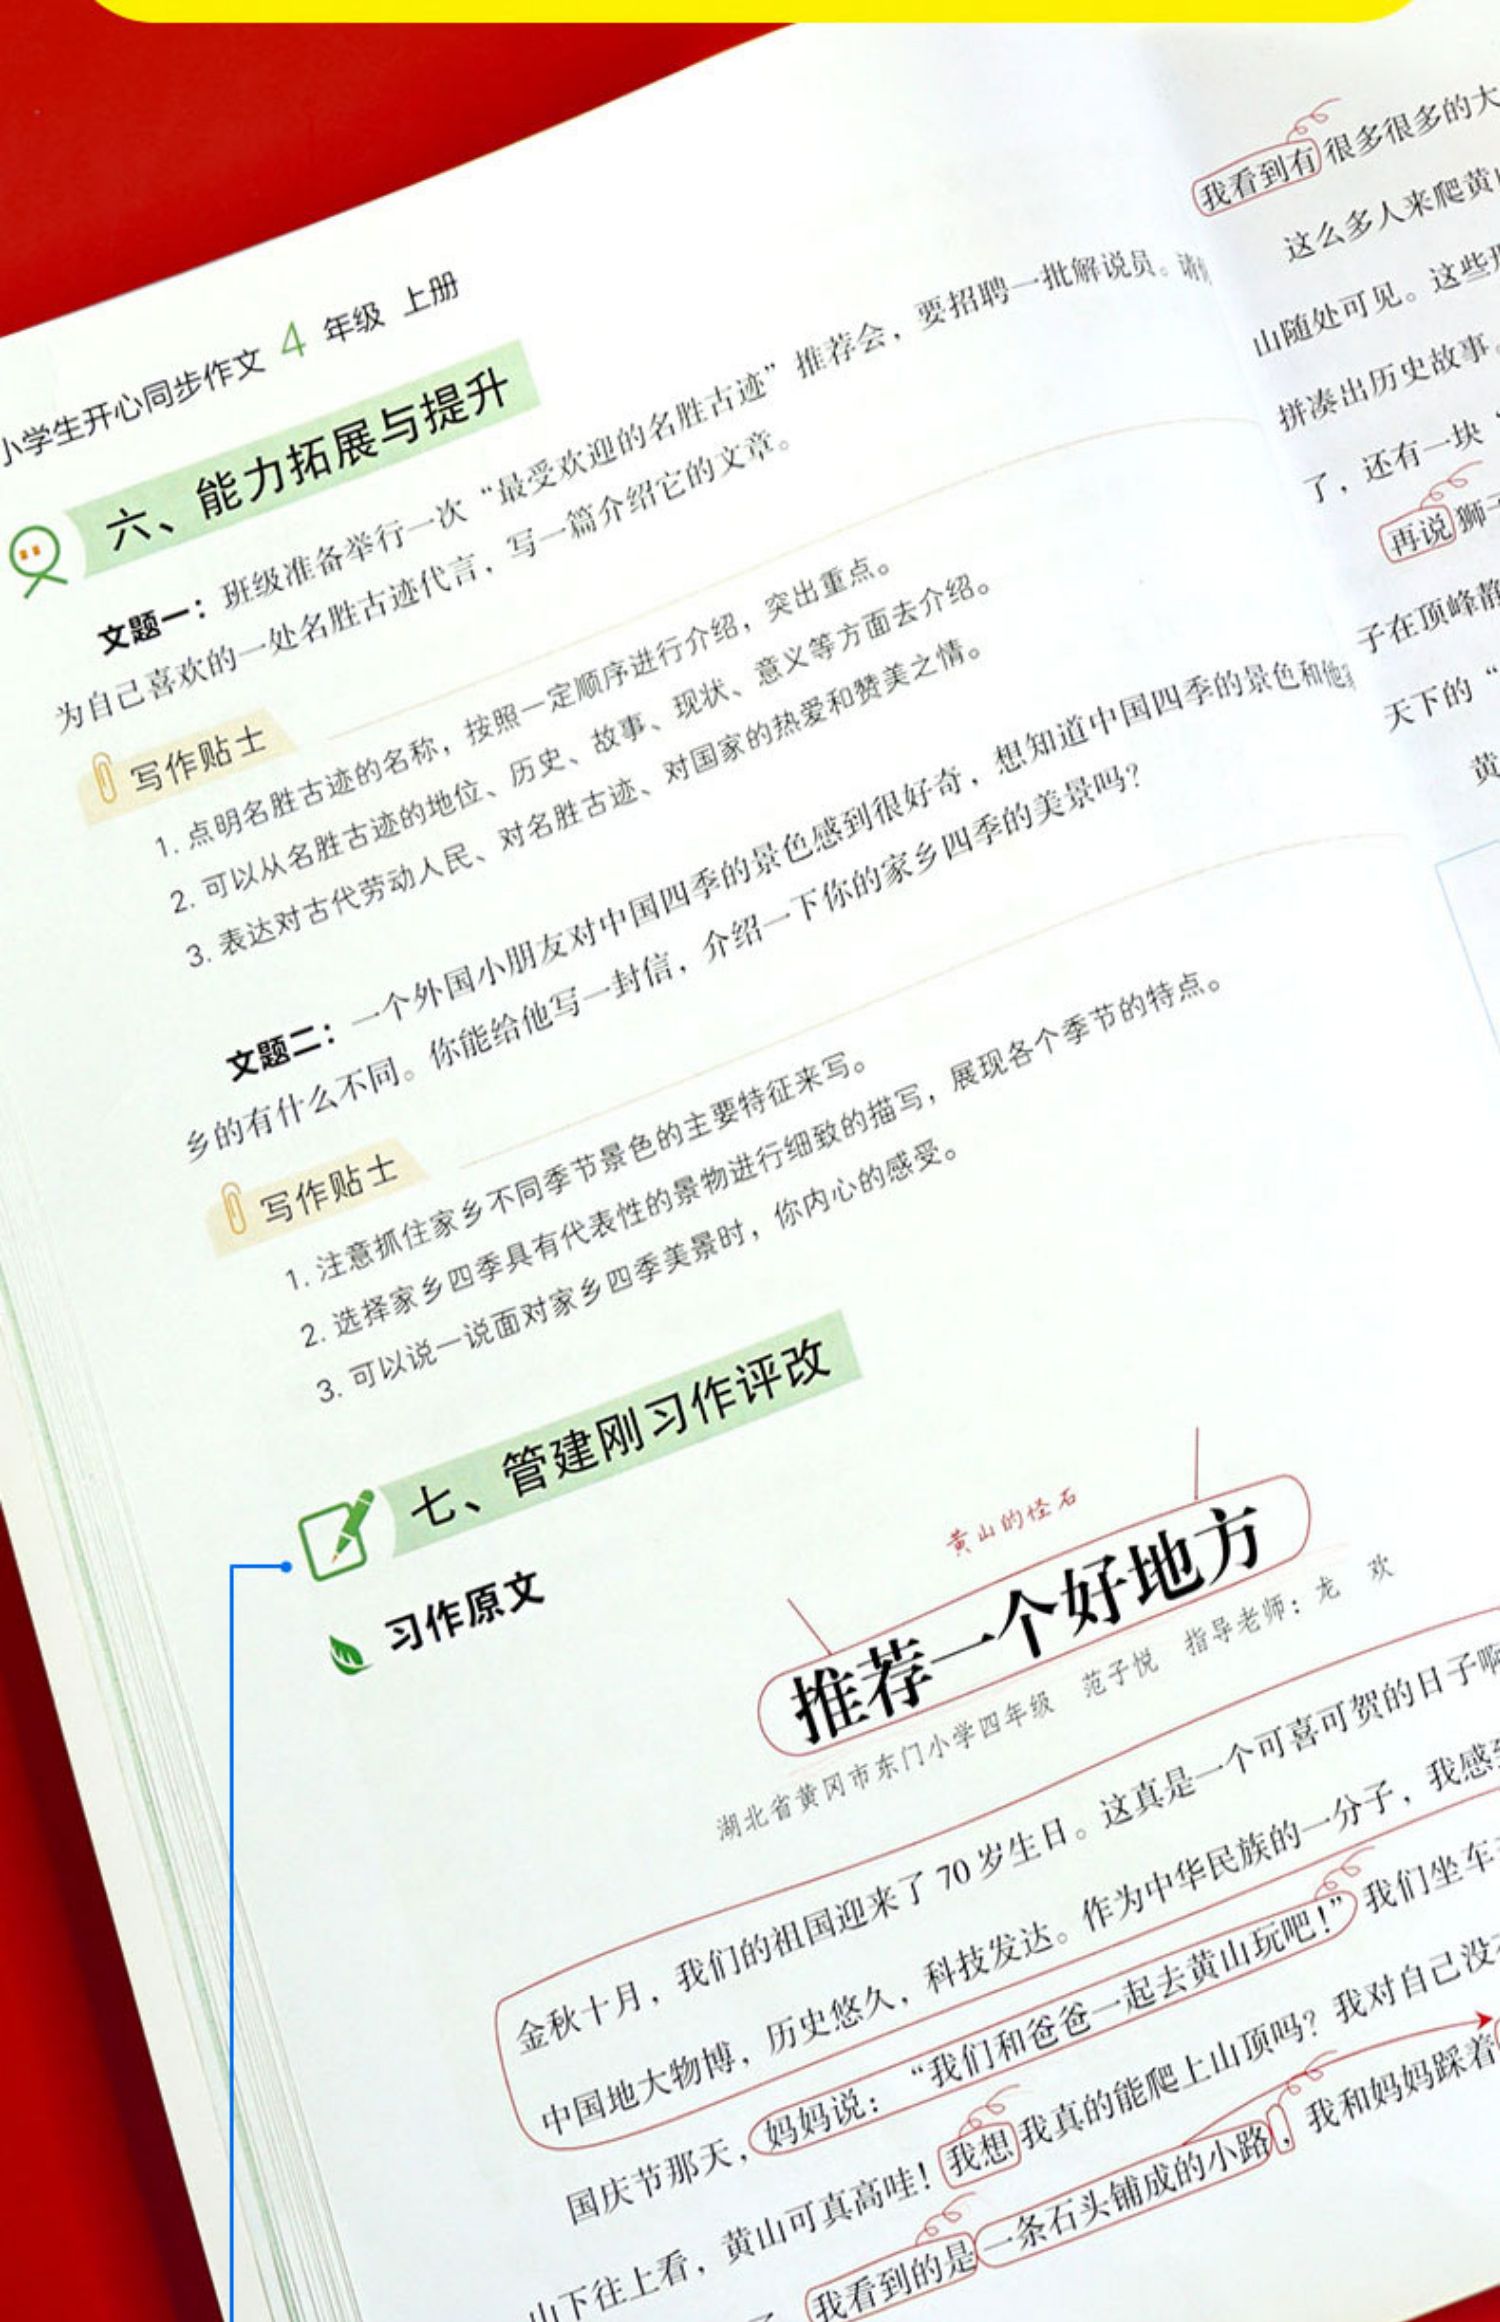 小学生开心同步作文 4 年级 上册
六、能力拓展与提升
文题一：班级准备举行一次“最受欢迎的名胜古迹”推荐会，要招聘一批解说员。请你
为自己喜欢的一处名胜古迹代言，写一篇介绍它的文章。
写作贴士
1. 点明名胜古迹的名称，按照一定顺序进行介绍，突出重点。
2. 可以从名胜古迹的地位、历史、故事、现状、意义等方面去介绍。
3. 表达对古代劳动人民、对名胜古迹、对国家的热爱和赞美之情。
文题二：一个外国小朋友对中国四季的景色感到很好奇，想知道中国四季的景色和他家
乡的有什么不同。你能给他写一封信，介绍一下你的家乡四季的美景吗？
写作贴士
1. 注意抓住家乡不同季节景色的主要特征来写。
2. 选择家乡四季具有代表性的景物进行细致的描写，展现各个季节的特点。
3. 可以说一说面对家乡四季美景时，你内心的感受。
七、管建刚习作评改
习作原文
黄山的怪石
推荐一个好地方
湖北省黄冈市东门小学四年级 范子悦 指导老师：龙 欢
金秋十月，我们的祖国迎来了70岁生日。这真是一个可喜可贺的日子啊
中国地大物博，历史悠久，科技发达。作为中华民族的一分子，我感
国庆节那天，妈妈说：“我们和爸爸一起去黄山玩吧！”我们坐车
山下往上看，黄山可真高哇！我想我真的能爬上山顶吗？我对自己没
我看到的是一条石头铺成的小路，我和妈妈踩着
我看到有很多很多的大
这么多人来爬黄山
山随处可见。这些
拼凑出历史故事。
了，还有一块“
再说狮子
子在顶峰静
天下的“
黄